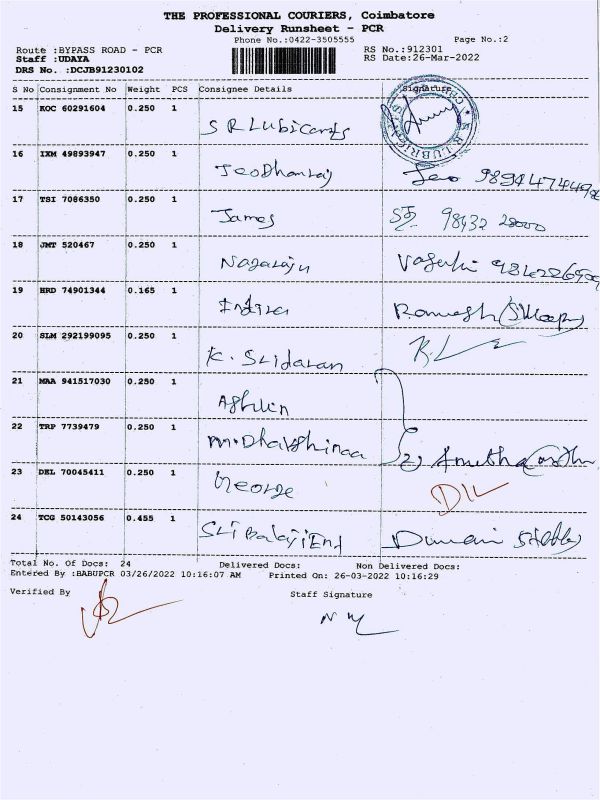 THE PROFESSIONAL COURIERS, Coimbatore
Delivery Runsheet - PCR
Phone No.:0422-3505555 Page No.:2
Route :BYPASS ROAD - PCR RS No.:912301
Staff :UDAYA RS Date:26-Mar-2022
DRS No. :DCJB91230102
S No Consignment No Weight PCS Consignee Details Signature
15 KOC 60291604 0.250 1 S R Lubicants
16 IXM 49893947 0.250 1 JeoDhanraj Jeno
17 TSI 7086350 0.250 1 James 98432 28000
18 JMT 520467 0.250 1 Nagaraju
19 HRD 74901344 0.165 1 Indira Ramesh
20 SLM 292199095 0.250 1 K. Sridaran
21 MAA 941517030 0.250 1 Ashwin
22 TRP 7739479 0.250 1 M.Dharshinaa Amutha
23 DEL 70045411 0.250 1 George
24 TCG 50143056 0.455 1 Sri Balaji Ent
Total No. Of Docs: 24 Delivered Docs: Non Delivered Docs:
Entered By :BABUPCR 03/26/2022 10:16:07 AM Printed On: 26-03-2022 10:16:29
Verified By Staff Signature